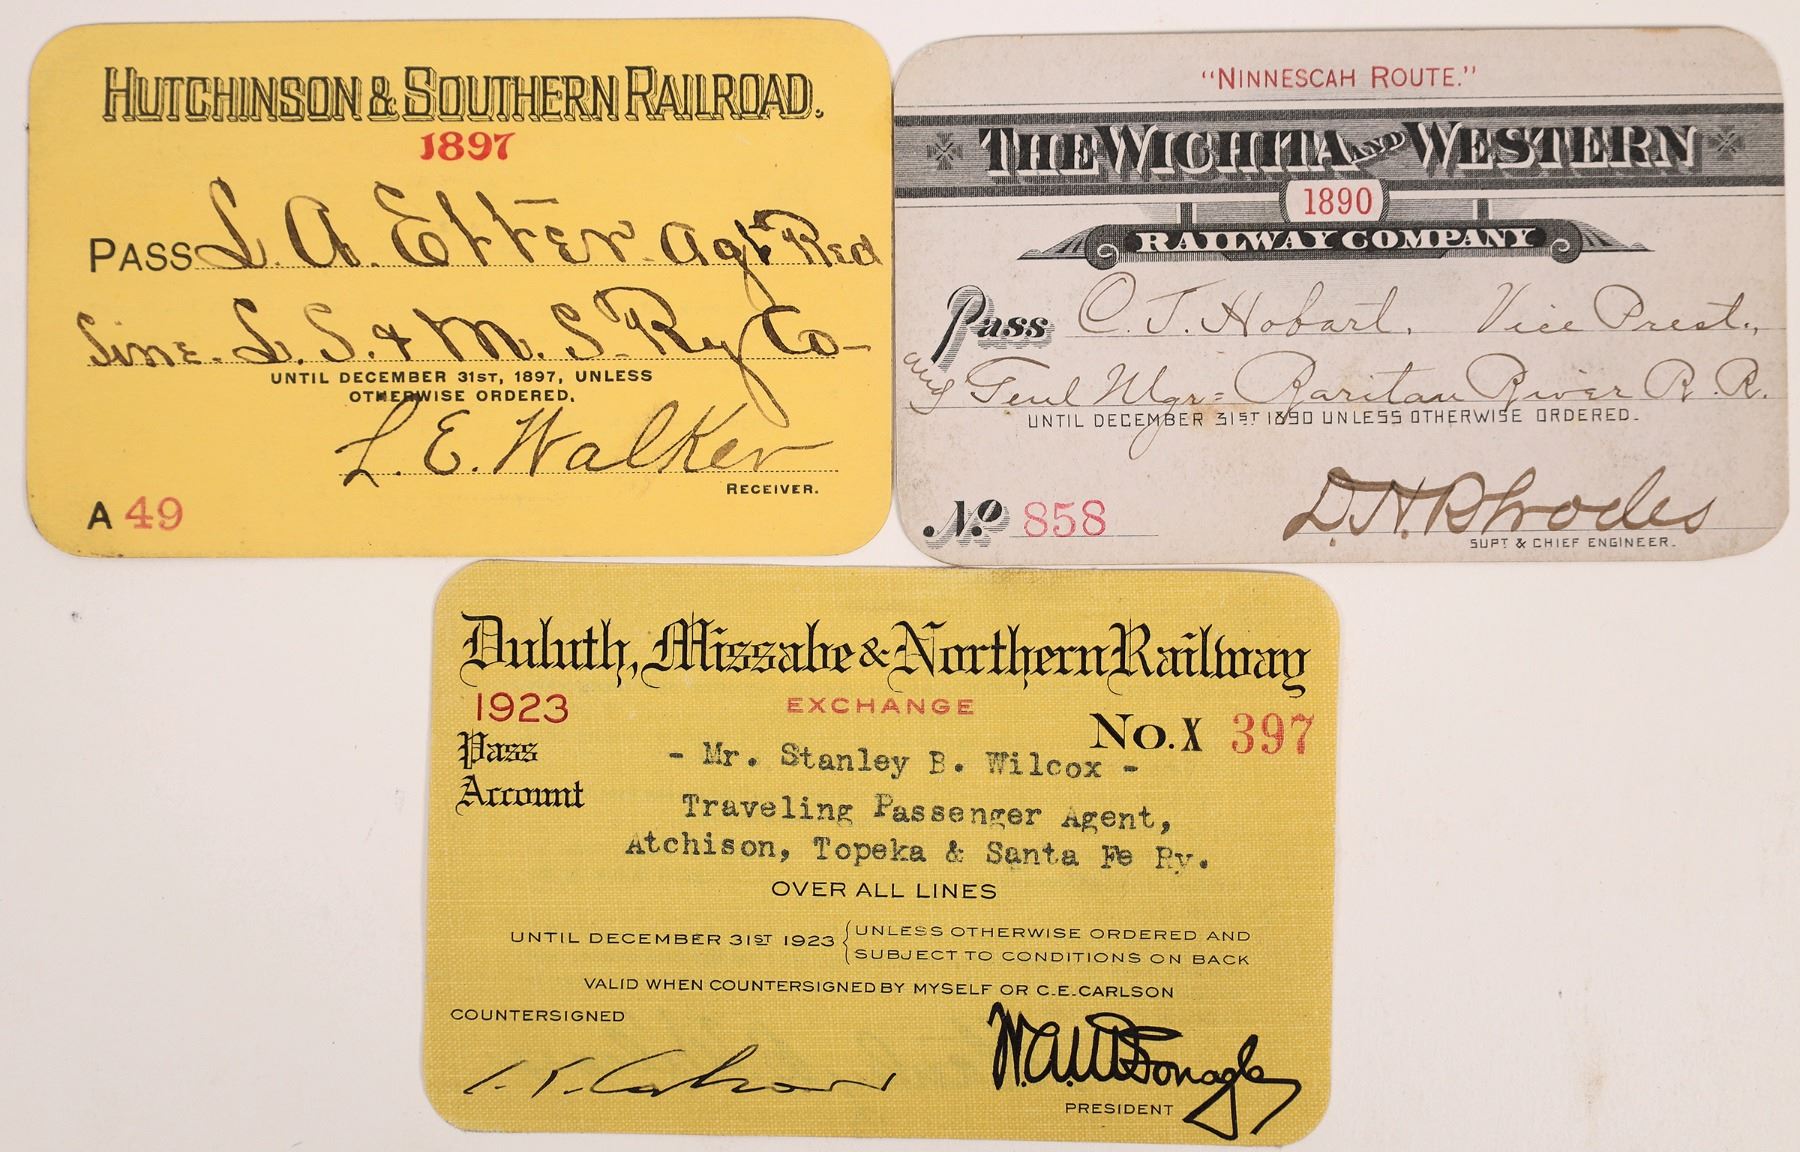 HUTCHINSON & SOUTHERN RAILROAD.
1897
PASS L. A. Etter. Agt Red
Line. L. S. & M. S. Ry Co-
UNTIL DECEMBER 31ST, 1897, UNLESS
OTHERWISE ORDERED.
L. E. Walker
RECEIVER.
A 49
"NINNESCAH ROUTE."
THE WICHITA AND WESTERN
1890
RAILWAY COMPANY
Pass C. J. Hobart, Vice Prest.,
and Genl Mgr= Raritan River R. R.
UNTIL DECEMBER 31ST 1890 UNLESS OTHERWISE ORDERED.
No. 858
D. H. Rhodes
SUPT & CHIEF ENGINEER.
Duluth, Missabe & Northern Railway
1923
EXCHANGE
No. X 397
Pass
- Mr. Stanley B. Wilcox -
Account
Traveling Passenger Agent,
Atchison, Topeka & Santa Fe Ry.
OVER ALL LINES
UNTIL DECEMBER 31ST 1923 { UNLESS OTHERWISE ORDERED AND
SUBJECT TO CONDITIONS ON BACK
VALID WHEN COUNTERSIGNED BY MYSELF OR C.E. CARLSON
COUNTERSIGNED
W.A. McGonagle
PRESIDENT